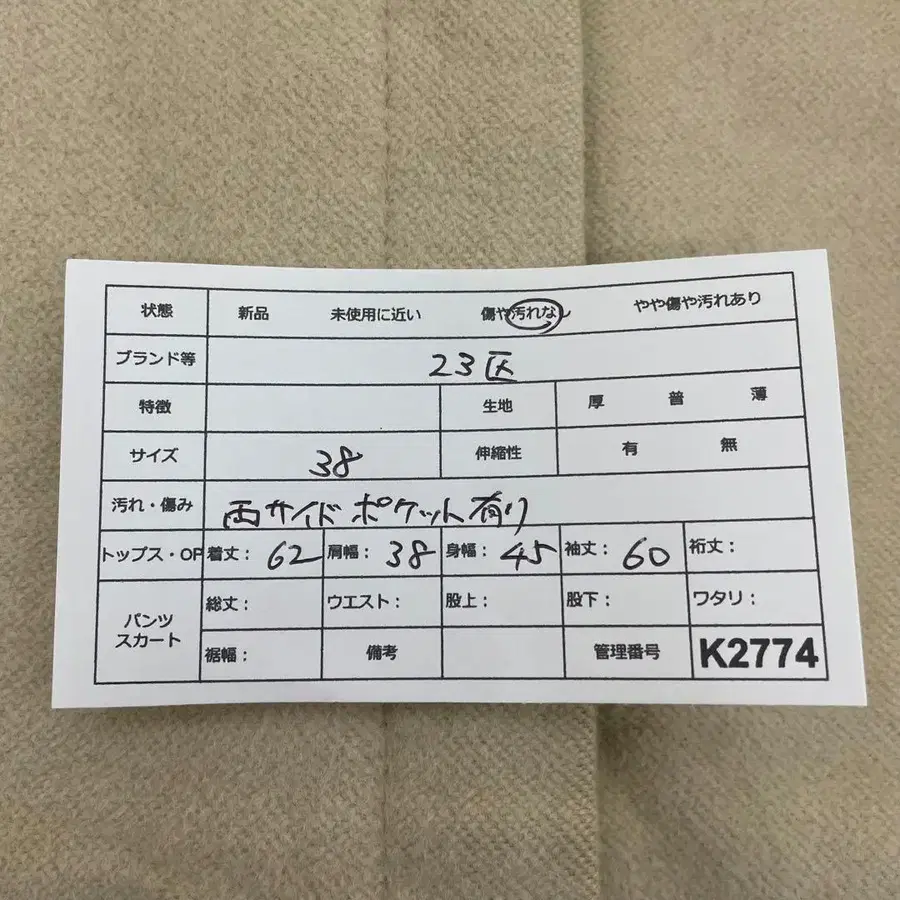 状態 新品 未使用に近い 傷や汚れな やや傷や汚れあり
ブランド等 23区
特徴 生地 厚 普 薄
サイズ 38 伸縮性 有 無
汚れ・傷み 両サイドポケット有り
トップス・OP 着丈: 62 肩幅: 38 身幅: 45 袖丈: 60 裄丈:
パンツ スカート 総丈: ウエスト: 股上: 股下: ワタリ:
裾幅: 備考 管理番号 K2774